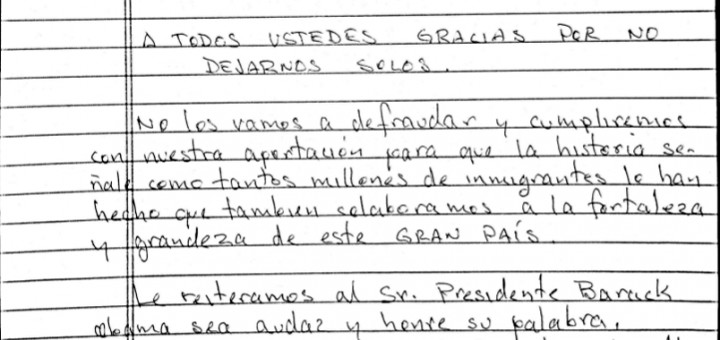 A TODOS USTEDES GRACIAS POR NO
DEJARNOS SOLOS.
No los vamos a defraudar y cumpliremos
con nuestra aportación para que la historia se-
ñale como tantos millones de inmigrantes lo han
hecho que tambien colaboramos a la fortaleza
y grandeza de este GRAN PAÍS.
Le reiteramos al Sr. Presidente Barack
obama sea audaz y honre su palabra,